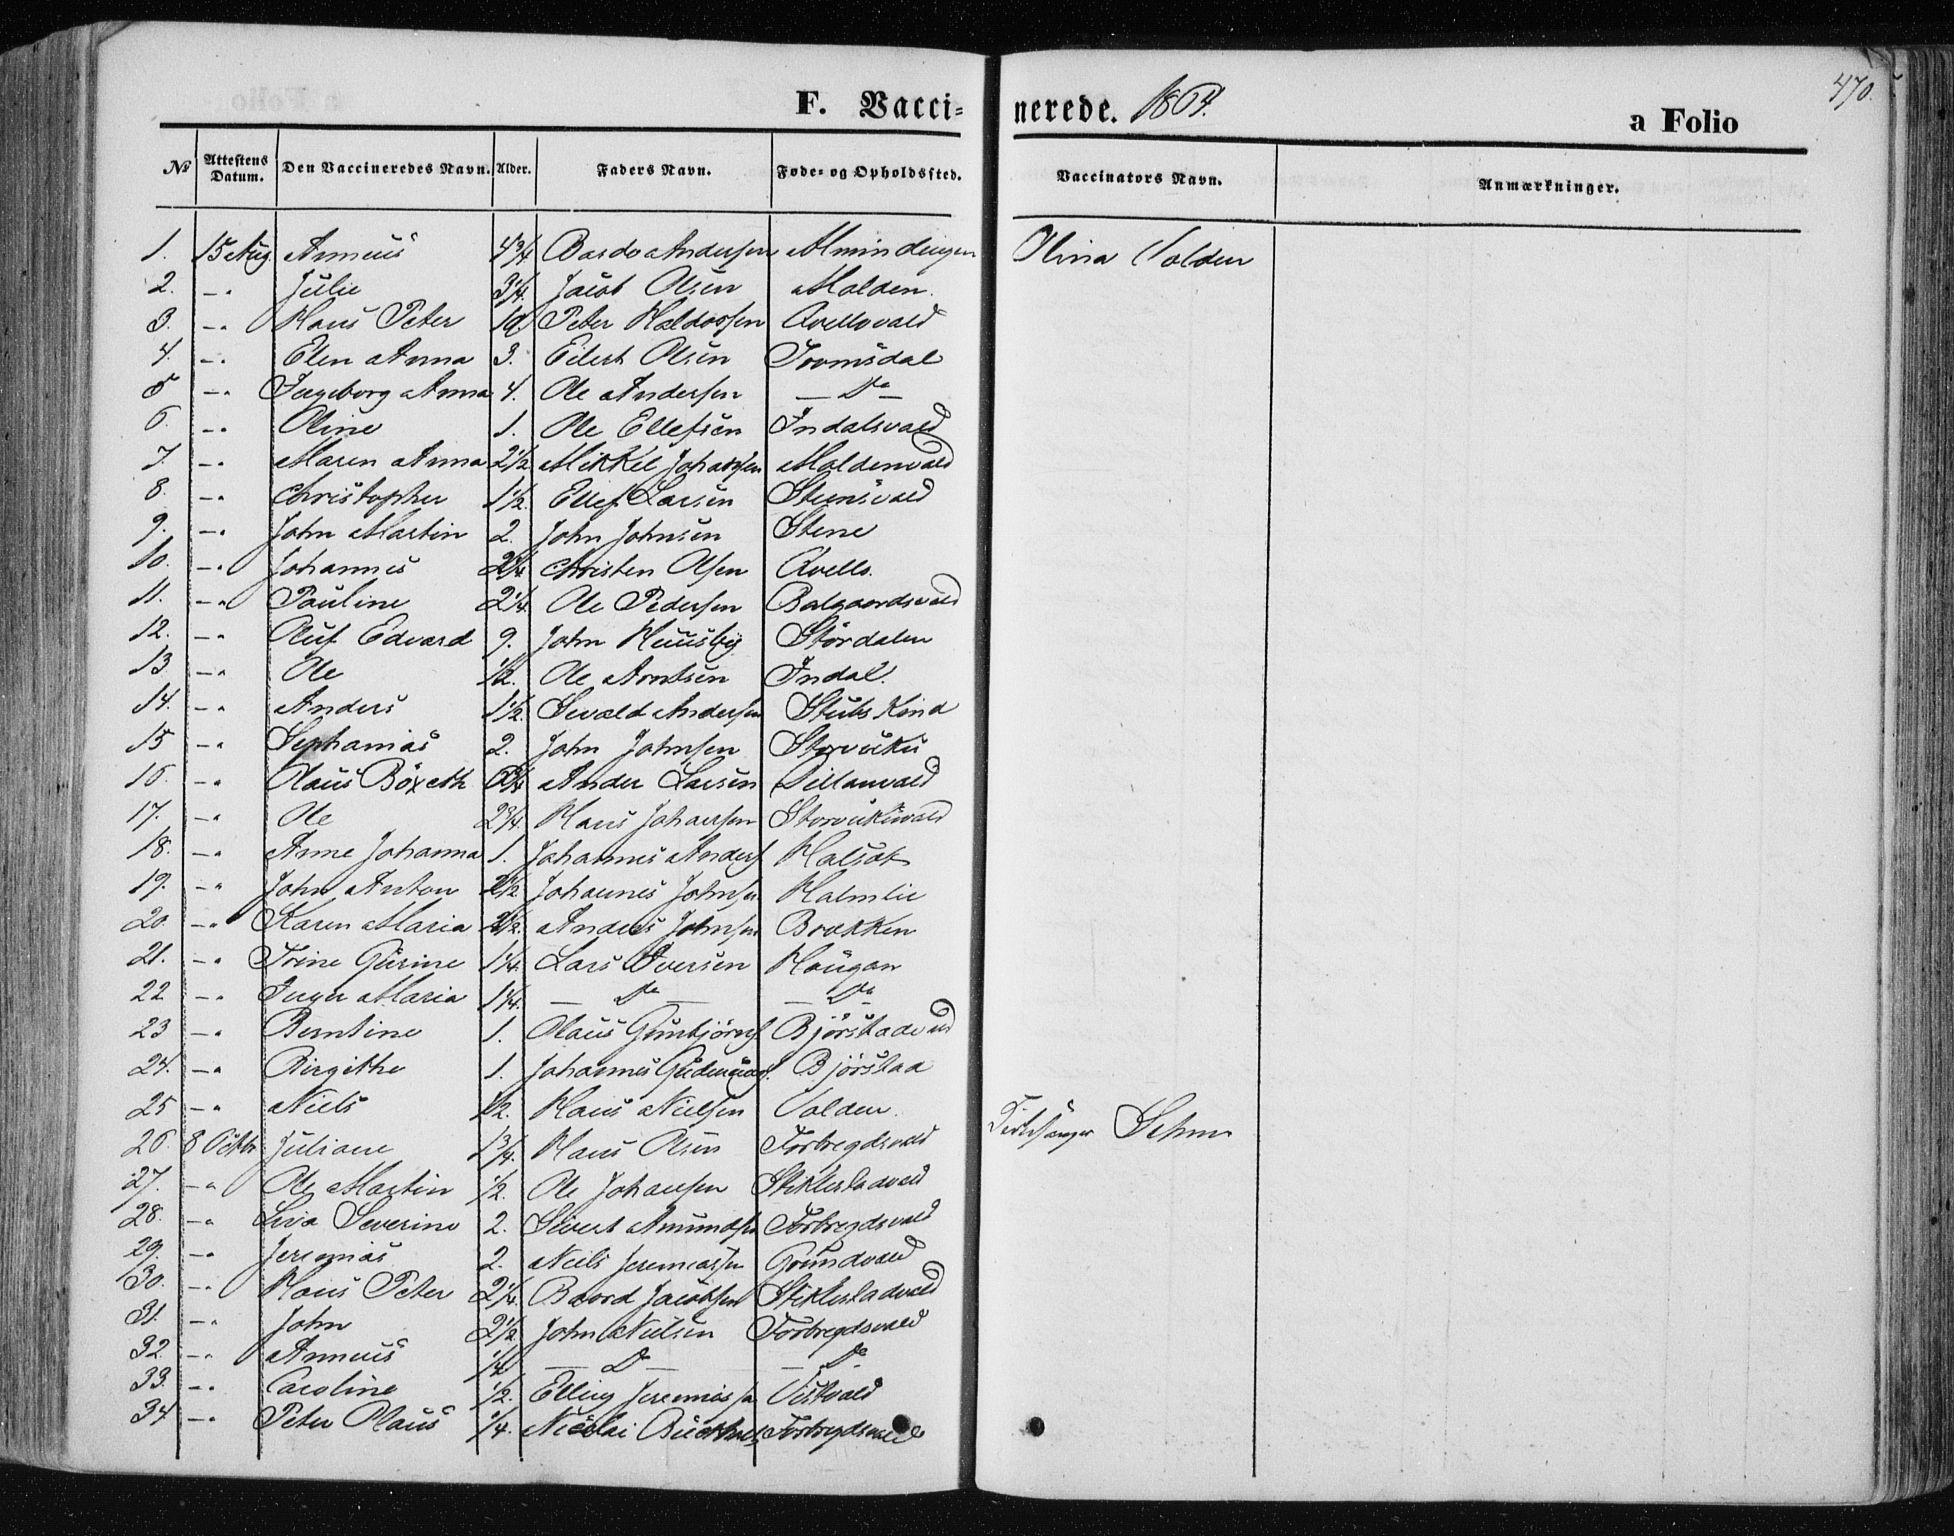 470.
F. Vaccinerede. 1864.
a Folio
No Attestens Datum. Den Vaccineredes Navn. Alder. Faders Navn. Føde- og Opholdssted. Vaccinators Navn. Anmærkninger.
1. 15 Aug Anneus 4 3/4 Bardo Andersen Almindingen Olina Volden
2. -"- Julie 3 1/4 Jacob Olsen Molden.
3. -"- Hans Peter Peter Haldorsen Qvellovald
4. -"- Elen Anna 3. Eilert Olsen Tromsdal
5 -"- Ingeborg Anna 4. Ole Andersen — Do —
6. -"- Oline 1. Ole Ellefsen Indalsvald
7. -"- Maren Anna 2 1/2 Mikkel Johansen Moldenvald
8. -"- Christopher 1 1/2. Ellef Larsen Steensvald
9. -"- John Martin 2. John Johnsen Stene
10. -"- Johannes 2 1/4 Christen Olsen Qvello.
11. -"- Pauline 2 1/4. Ole Pedersen Balgaardsvald
12. -"- Oluf Edvard 9. John Huusby Stördalen
13 -"- Ole 1/2. Ole Arntsen Indal.
14. -"- Anders 1 1/2 Sevald Andersen Stubskind
15 -"- Sephanias 2. John Johnsen Storvuku
16. -"- Olaus Anders Larsen
17. -"- Ole 2 3/4. Hans Johansen Storvukuvald
18. -"- Anne Johanna 1. Johannes Anders. Halsat
19. -"- John Anton 2 1/2 Johannes Johnsen Holmlie
20. -"- Karen Maria 2 1/2. Anders Johnsen Brækken
21. -"- Trine Gurine 1 1/4. Lars Iversen Haugan
22 -"- Inger Maria 1 1/4. — Do — — Do —
23 -"- Berntine 1. Olaus Gunbjörns. Björstadvald
24. -"- Birgithe 1. Johannes Björstad
25 -"- Niels 1/2. Hans Nielsen Volden.
26. 8 Octbr Juliane 1 3/4. Hans Olsen Forbregdsvald Kirkesanger
27. -"- Ole Martin 1/2. Ole Johansen Stiklestadvald
28. -"- Lisa Severine 2. Sivert Amundsen Forbregdsvald
29. -"- Jeremias 2. Niels Jeremiassen Grundvald
30. -"- Hans Peter 2 1/4. Baard Jacobsen Stiklestadvald
31. -"- John 2 1/2 John Nielsen Forbregdsvald
32. -"- Anneus 1/4 — Do — — Do —
33. -"- Caroline 1/2. Elling Jeremiassen Vistvald
34 -"- Peter Olaus 1/4. Nicolai Forbregdsvald